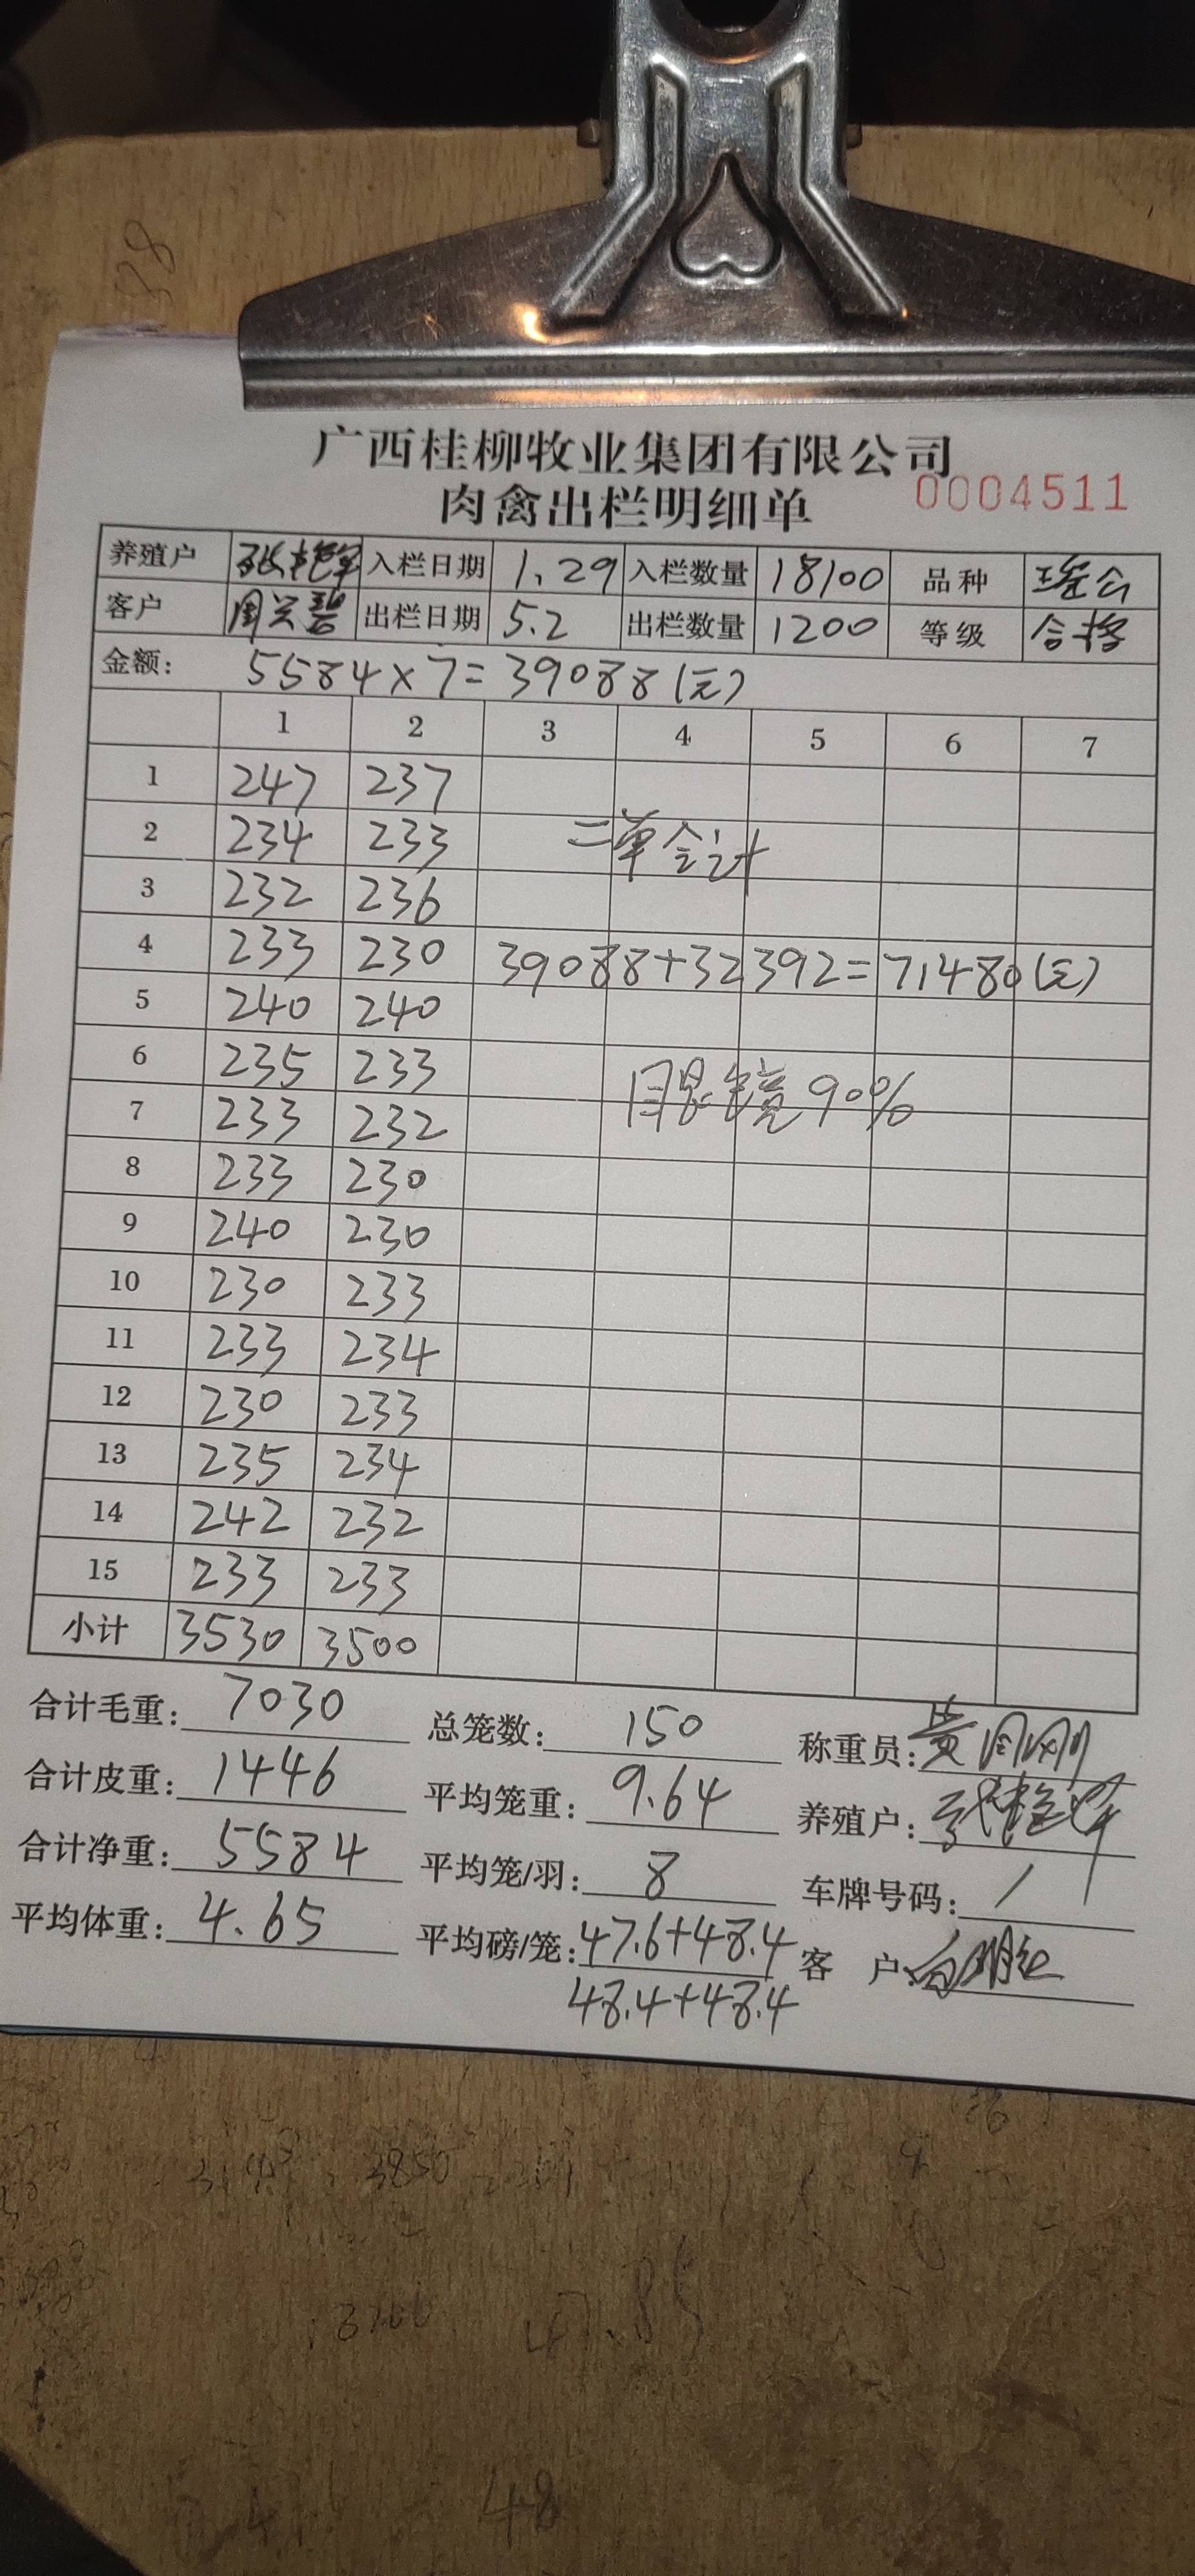 广西桂柳牧业集团有限公司
肉禽出栏明细单 0004511
养殖户 入栏日期 1.29 入栏数量 18100 品种 瑶公
客户 周兴 出栏日期 5.2 出栏数量 1200 等级 合格
金额: 5584×7=39088(元)
1 2 3 4 5 6 7
1 247 237
2 234 233 二单合计
3 232 236
4 233 230 39088+32392=71480(元)
5 240 240
6 235 233 眼镜90%
7 233 232
8 233 230
9 240 230
10 230 233
11 233 234
12 230 233
13 235 234
14 242 232
15 233 233
小计 3530 3500
合计毛重: 7030 总笼数: 150 称重员: 黄国刚
合计皮重: 1446 平均笼重: 9.64 养殖户:
合计净重: 5584 平均笼/羽: 8 车牌号码: /
平均体重: 4.65 平均磅/笼: 47.6+48.4 客 户:
48.4+48.4
48